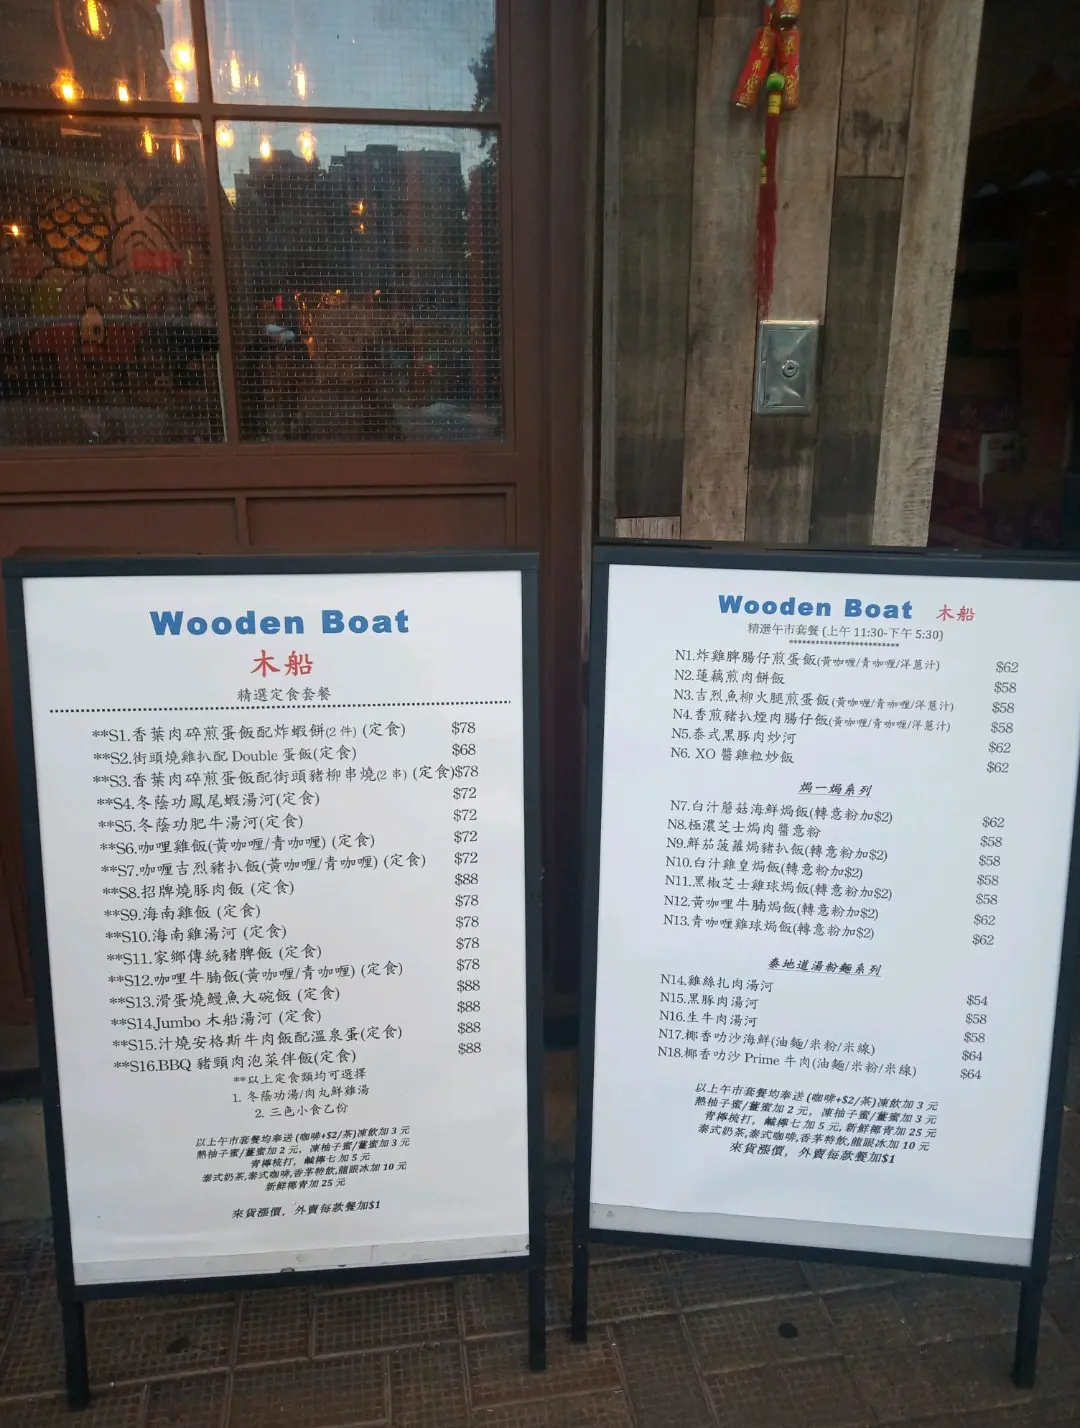 Wooden Boat
木船
精選定食套餐
**S1.香葉肉碎煎蛋飯配炸蝦餅(2 件) (定食) $78
**S2.街頭燒雞扒配 Double 蛋飯(定食) $68
**S3.香葉肉碎煎蛋飯配街頭豬柳串燒(2 串) (定食)$78
**S4.冬蔭功鳳尾蝦湯河(定食) $72
**S5.冬蔭功肥牛湯河(定食) $72
**S6.咖哩雞飯(黃咖喱/青咖喱) (定食) $72
**S7.咖喱吉烈豬扒飯(黃咖喱/青咖喱) (定食) $72
**S8.招牌燒豚肉飯 (定食) $88
**S9.海南雞飯 (定食) $78
**S10.海南雞湯河 (定食) $78
**S11.家鄉傳統豬脾飯 (定食) $78
**S12.咖哩牛腩飯(黃咖喱/青咖喱) (定食) $78
**S13.滑蛋燒鰻魚大碗飯 (定食) $88
**S14.Jumbo 木船湯河 (定食) $88
**S15.汁燒安格斯牛肉飯配溫泉蛋(定食) $88
**S16.BBQ 豬頸肉泡菜伴飯(定食) $88
**以上定食類均可選擇
1. 冬蔭功湯/肉丸鮮雞湯
2. 三色小食乙份
以上午市套餐均奉送 (咖啡+$2/茶)凍飲加 3 元
熱柚子蜜/薑蜜加 2 元, 凍柚子蜜/薑蜜加 3 元
青檸梳打, 鹹檸七 加 5 元
泰式奶茶,泰式咖啡,香茅特飲,龍眼冰加 10 元
新鮮椰青加 25 元
來貨漲價, 外賣每款餐加$1
Wooden Boat 木船
精選午市套餐 (上午 11:30-下午 5:30)
************************
N1.炸雞脾腸仔煎蛋飯(黃咖喱/青咖喱/洋蔥汁) $62
N2.蓮藕煎肉餅飯 $58
N3.吉烈魚柳火腿煎蛋飯(黃咖喱/青咖喱/洋蔥汁) $58
N4.香煎豬扒煙肉腸仔飯(黃咖喱/青咖喱/洋蔥汁) $58
N5.泰式黑豚肉炒河 $62
N6. XO 醬雞粒炒飯 $62
焗一焗系列
N7.白汁蘑菇海鮮焗飯(轉意粉加$2) $62
N8.極濃芝士焗肉醬意粉 $58
N9.鮮茄菠蘿焗豬扒飯(轉意粉加$2) $58
N10.白汁雞皇焗飯(轉意粉加$2) $58
N11.黑椒芝士雞球焗飯(轉意粉加$2) $58
N12.黃咖喱牛腩焗飯(轉意粉加$2) $62
N13.青咖喱雞球焗飯(轉意粉加$2) $62
泰地道湯粉麵系列
N14.雞絲扎肉湯河 $54
N15.黑豚肉湯河 $58
N16.生牛肉湯河 $58
N17.椰香叻沙海鮮(油麵/米粉/米線) $64
N18.椰香叻沙 Prime 牛肉(油麵/米粉/米線) $64
以上午市套餐均奉送 (咖啡+$2/茶)凍飲加 3 元
熱柚子蜜/薑蜜加 2 元, 凍柚子蜜/薑蜜加 3 元
青檸梳打, 鹹檸七 加 5 元,新鮮椰青加 25 元
泰式奶茶,泰式咖啡,香茅特飲,龍眼冰加 10 元
來貨漲價, 外賣每款餐加$1